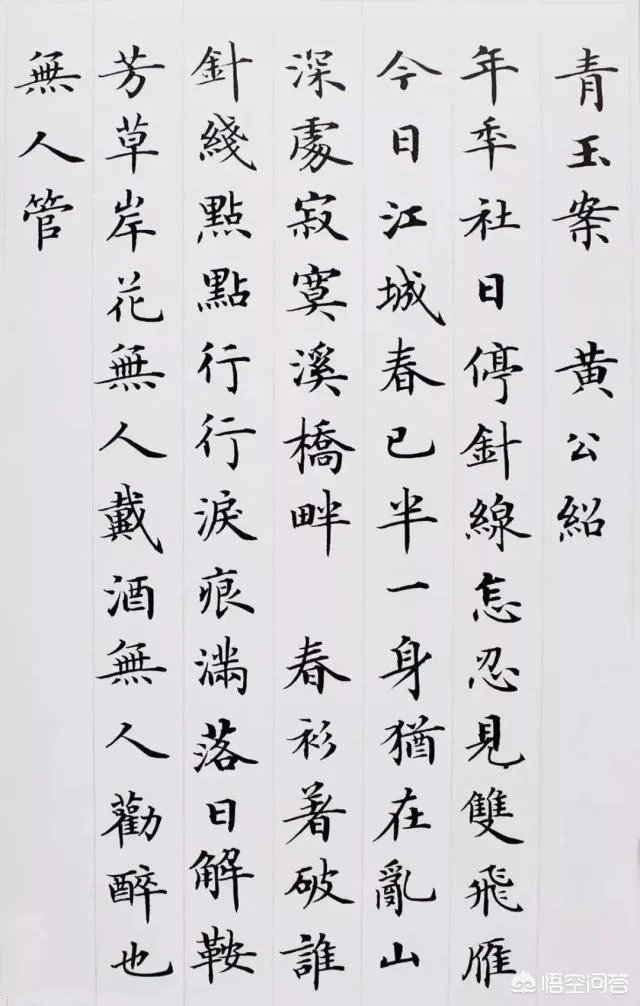 青玉案 黃公紹
年年社日停針線怎忍見雙飛雁
今日江城春已半一身猶在亂山
深處寂寞溪橋畔 春衫著破誰
針綫點點行行淚痕滿落日解鞍
芳草岸花無人戴酒無人勸醉也
無人管
悟空问答